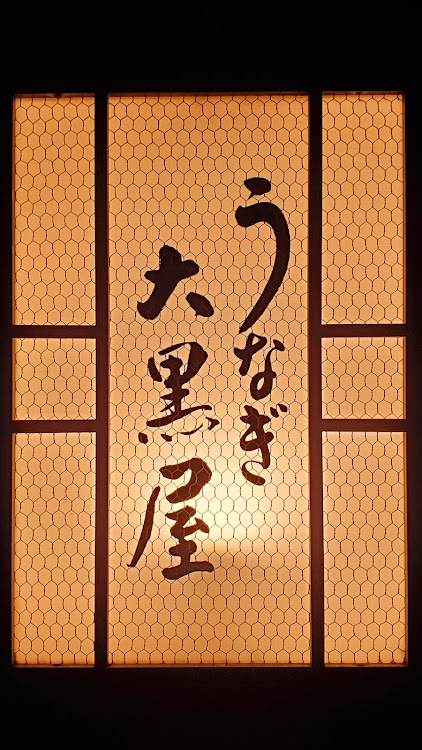 うなぎ
大黒屋